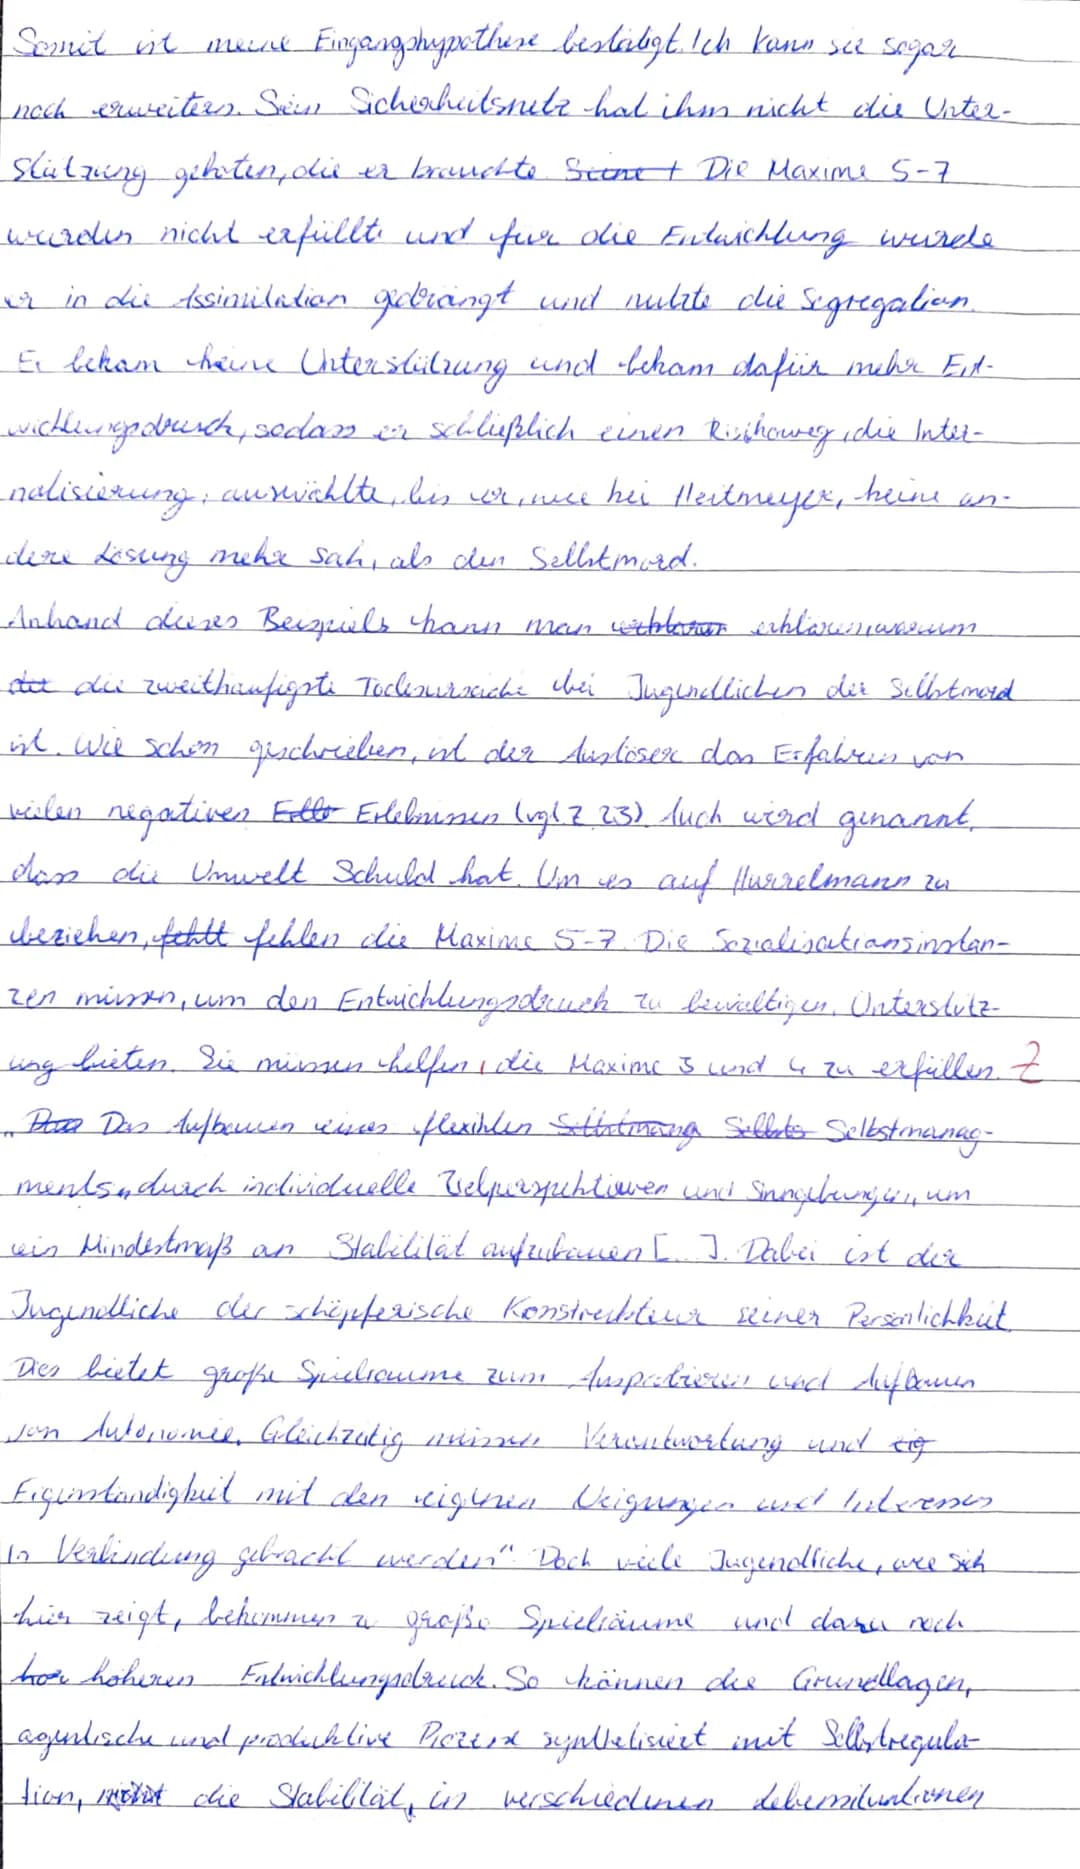 Somit ist meine Eingangshypothese bestätigt. Ich kann sie sogar
noch erweitern. Sein Sicherheitsnetz hat ihm nicht die Unter-
stützung geboten, die er brauchte. Seine t Die Maxime 5-7
wurden nicht erfüllt und für die Entwicklung wurde
er in die Assimilation gedrängt und nutzte die Segregation.
Er bekam keine Unterstützung und bekam dafür mehr Ent-
wicklungsdruck, sodass er schließlich einen Risikoweg, die Inter-
nalisierung, auswählte, bis er, wie bei Heitmeyer, keine an-
dere Lösung mehr sah, als den Selbstmord.
Anhand dieses Beispiels kann man erklären, warum
der die zweithäufigste Todesursache bei Jugendlichen der Selbstmord
ist. Wie schon geschrieben, ist der Auslöser das Erfahren von
vielen negativen Erlebnissen (vgl Z. 23). Auch wird genannt,
dass die Umwelt Schuld hat. Um es auf Hurrelmann zu
beziehen, fehlt fehlen die Maxime 5-7. Die Sozialisationsinstan-
zen müssen, um den Entwicklungsdruck zu bewältigen, Unterstütz-
ung bieten. Sie müssen helfen, die Maxime 3 und 4 zu erfüllen. Z
„ Das Das Aufbauen eines flexiblen Selbstmang Selbsts Selbstmanag-
ments „ durch individuelle Zielperspektiven und Sinngebungen, um
ein Mindestmaß an Stabilität aufzubauen [...]. Dabei ist der
Jugendliche der schöpferische Konstrukteur seiner Persönlichkeit.
Dies bietet große Spielräume zum Ausprobieren und Aufbauen
von Autonomie. Gleichzeitig müssen Verantwortung und eig
Eigenständigkeit mit den eigenen Neigungen und Interessen
in Verbindung gebracht werden“. Doch viele Jugendliche, wie sich
hier zeigt, bekommen zu große Spielräume und dazu noch
höheren Entwicklungsdruck. So können die Grundlagen,
agentische und produktive Prozesse synthetisiert mit Selbstregula-
tion, nicht die Stabilität, in verschiedenen Lebenssituationen